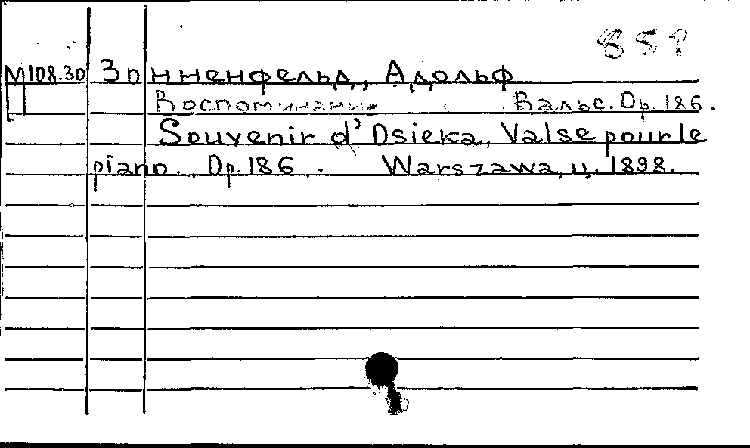 М108.30 Зонненфельд, Адольф
Воспоминание Вальс. Op. 186.
Souvenir d'Osieka, Valse pour le
piano. Op. 186. Warszawa, ц. 1898.